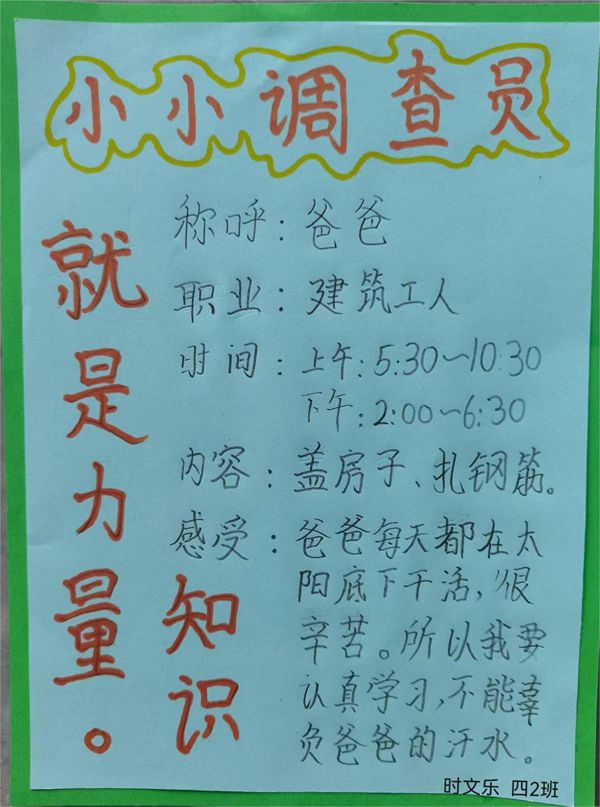 小小调查员
称呼：爸爸
职业：建筑工人
时间：上午：5:30～10:30
下午：2:00～6:30
内容：盖房子、扎钢筋。
感受：爸爸每天都在太
阳底下干活，很
辛苦。所以我要
认真学习，不能辜
负爸爸的汗水。
知识
就是力量。
时文乐 四2班